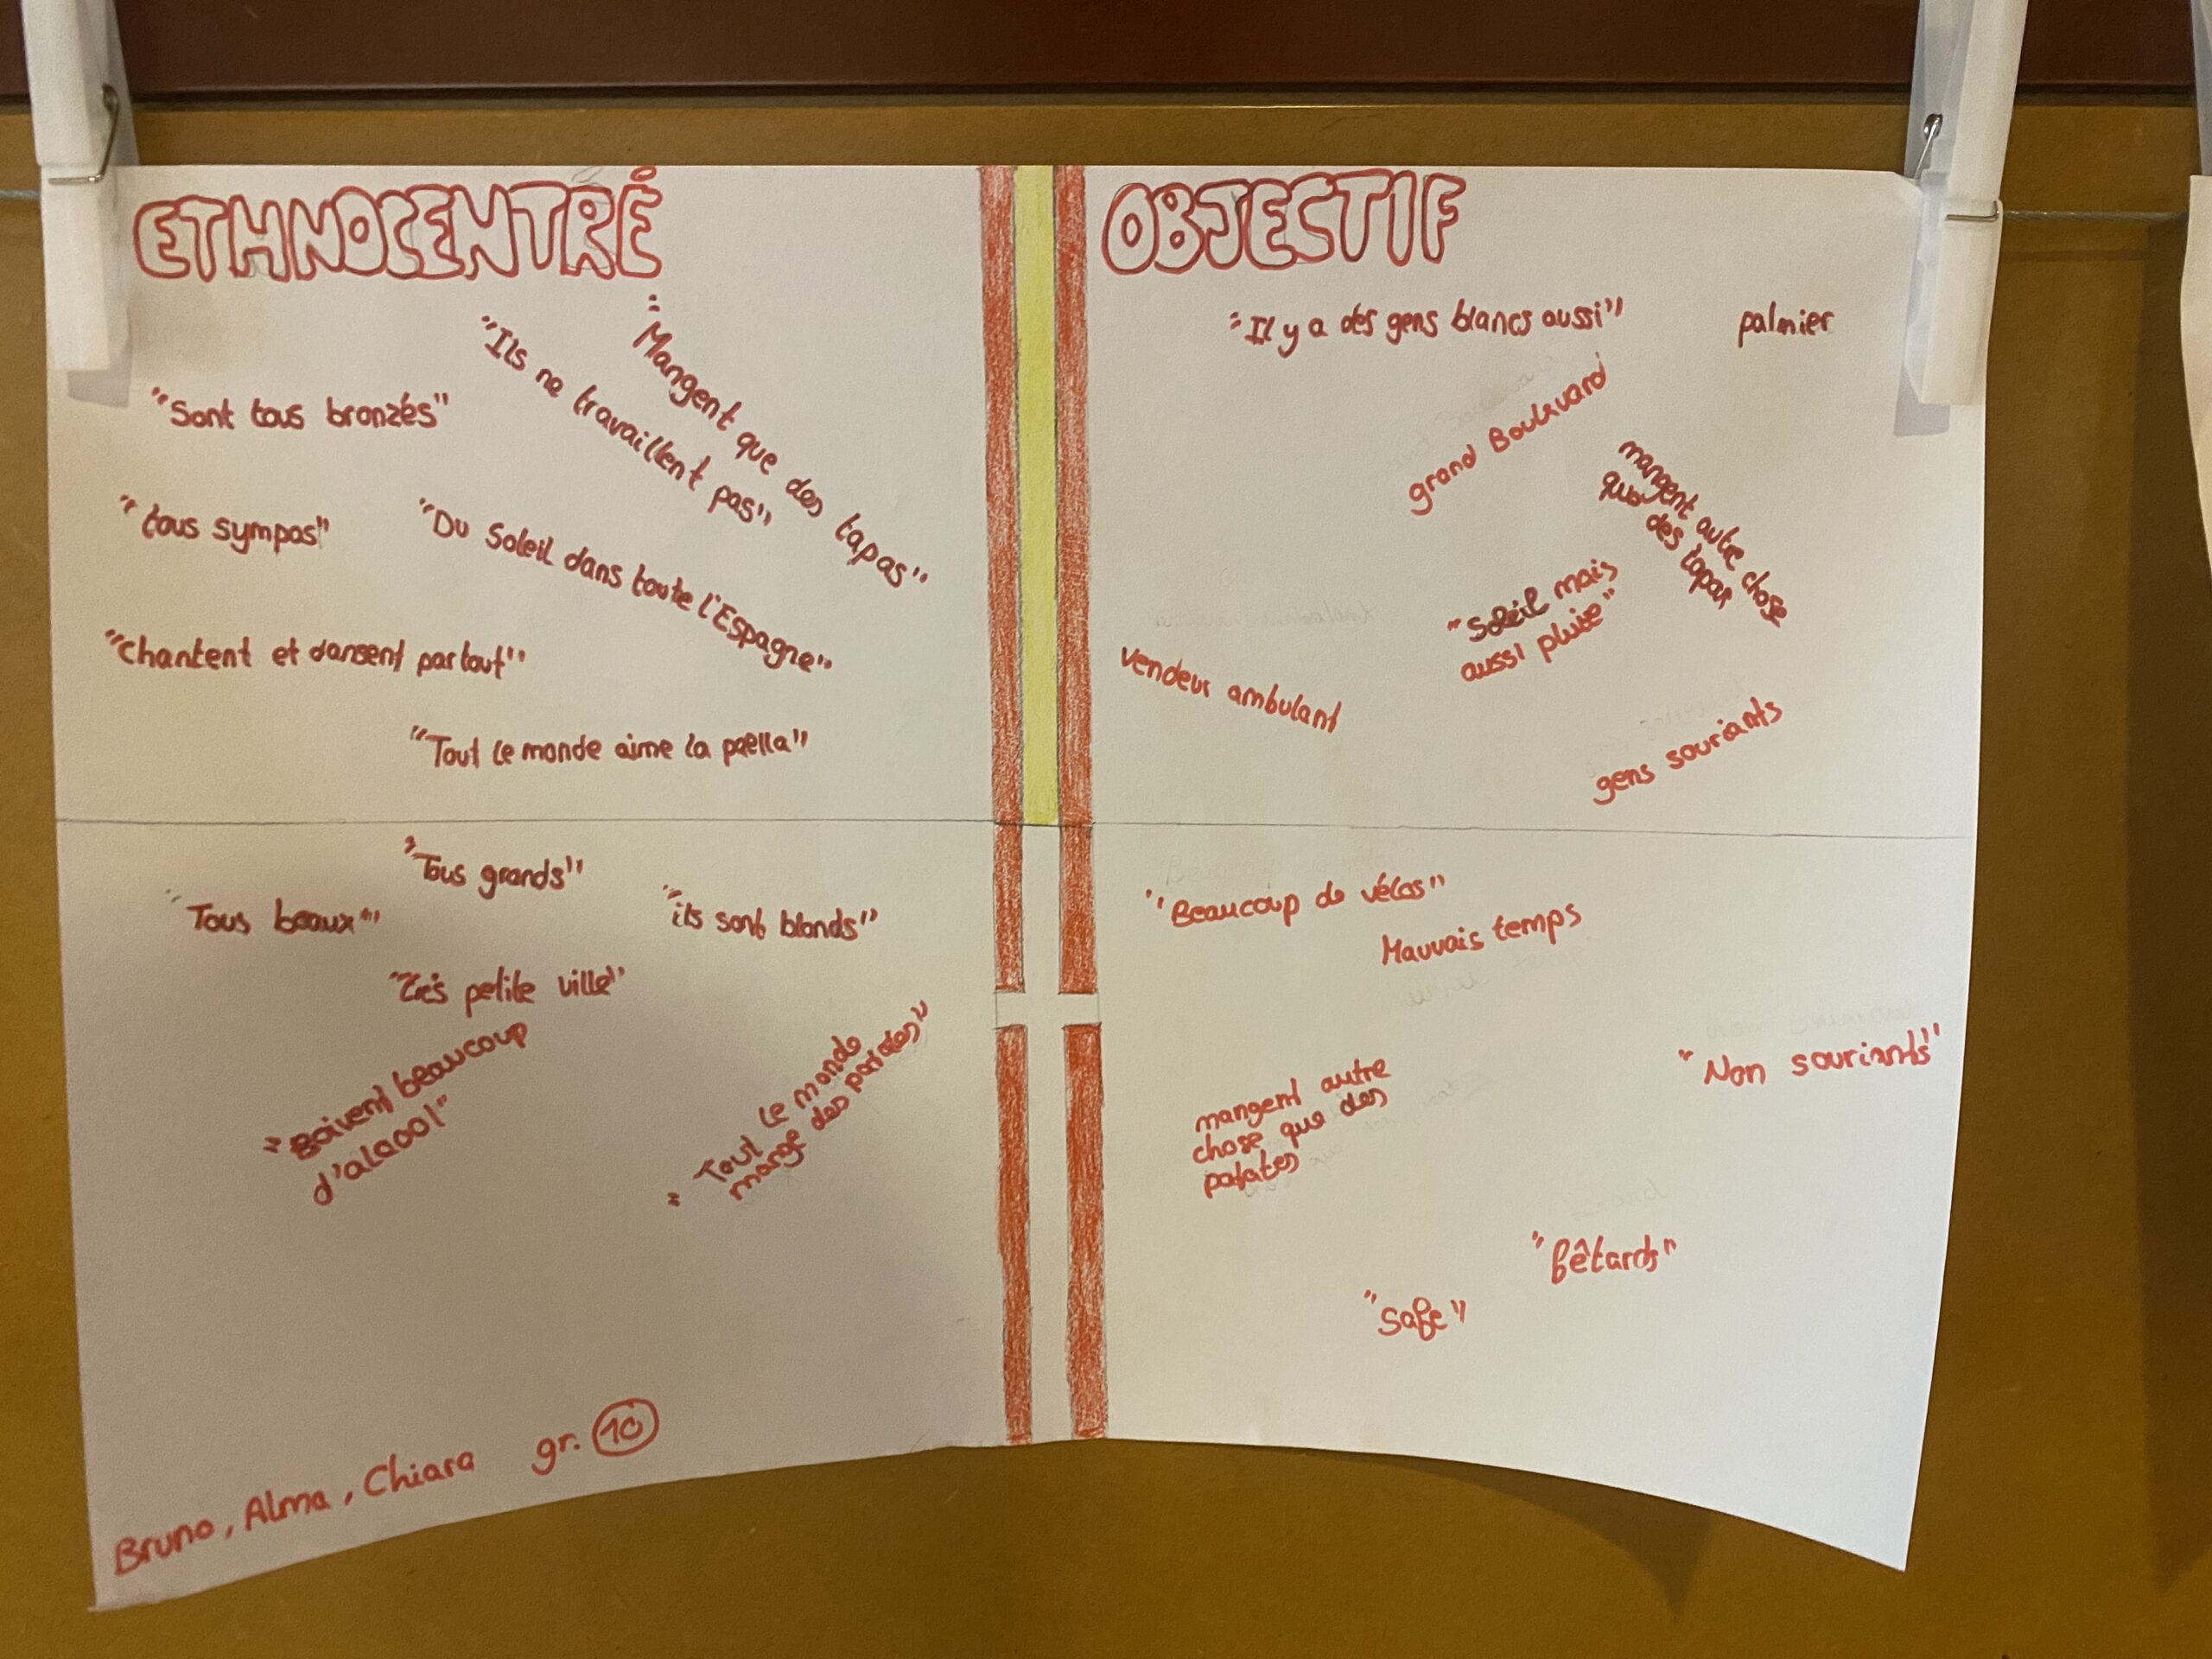 ETHNOCENTRÉ
"Mangent que des tapas"
"Ils ne travaillent pas"
"Sont tous bronzés"
"tous sympas"
"Du Soleil dans toute l'Espagne"
"Chantent et dansent partout"
"Tout le monde aime la paella"
OBJECTIF
"Il y a des gens blancs aussi"
palmier
grand Boulevard
mangent autre chose
que des tapas
"Soleil mais
aussi pluie"
vendeur ambulant
gens souriants
"Tous grands"
"Tous beaux"
"ils sont blonds"
"Très petite ville"
"Boivent beaucoup
d'alcool"
"Tout le monde
mange des patates"
"Beaucoup de vélos"
Mauvais temps
"Non souriants"
mangent autre
chose que des
patates
"fêtards"
"Safe"
Bruno, Alma, Chiara gr. 10